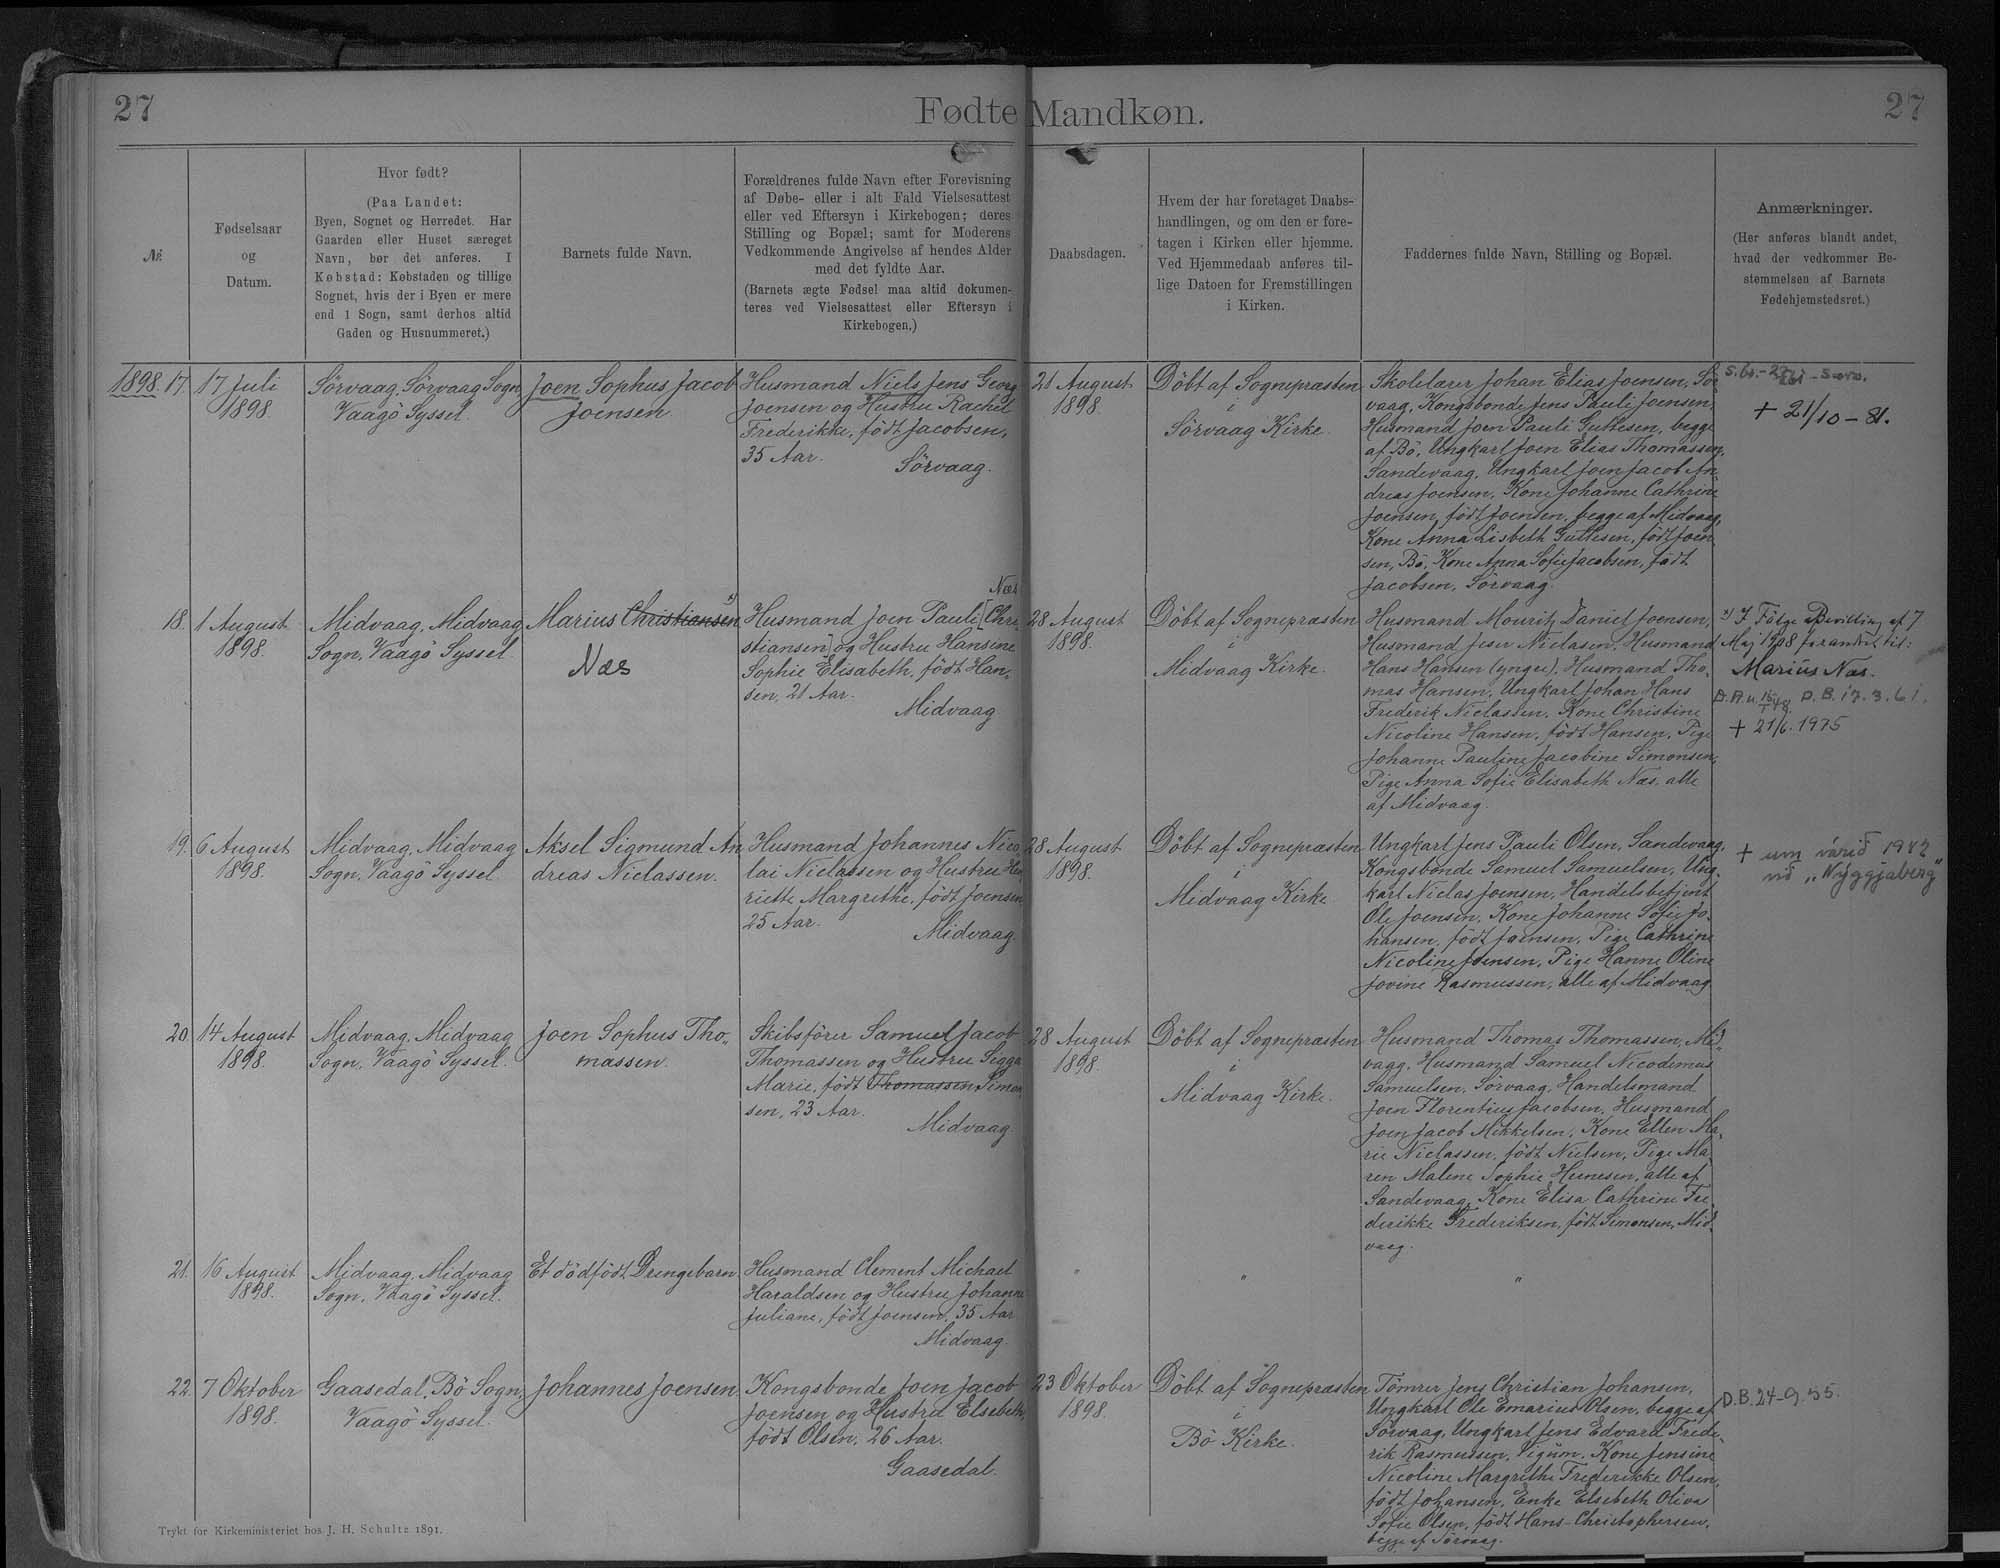 27
Fødte Mandkøn.
27
№
Fødselsaar
og
Datum.
Hvor født?
(Paa Landet:
Byen, Sognet og Herredet. Har
Gaarden eller Huset særeget
Navn, bør det anføres. I
Købstad: Købstaden og tillige
Sognet, hvis der i Byen er mere
end 1 Sogn, samt derhos altid
Gaden og Husnummeret.)
Barnets fulde Navn.
Forældrenes fulde Navn efter Forevisning
af Døbe- eller i alt Fald Vielsesattest
eller ved Eftersyn i Kirkebogen; deres
Stilling og Bopæl; samt for Moderens
Vedkommende Angivelse af hendes Alder
med det fyldte Aar.
(Barnets ægte Fødsel maa altid dokumen-
teres ved Vielsesattest eller Eftersyn i
Kirkebogen.)
Daabsdagen.
Hvem der har foretaget Daabs-
handlingen, og om den er fore-
tagen i Kirken eller hjemme.
Ved Hjemmedaab anføres til-
lige Datoen for Fremstillingen
i Kirken.
Faddernes fulde Navn, Stilling og Bopæl.
Anmærkninger.
(Her anføres blandt andet,
hvad der vedkommer Be-
stemmelsen af Barnets
Fødehjemstedsret.)
1898. 17.
17 Juli
1898.
Sörvaag, Sörvaag Sogn,
Vaagö Syssel.
Joen Sophus Jacob
Joensen
Husmand Niels Jens Georg
Joensen og Hustru Rachel
Frederikke, født Jacobsen,
35 Aar.
Sörvaag.
21 August
1898.
Döbt af Sognepræsten
i
Sörvaag Kirke.
Skolelærer Johan Elias Joensen, Sör
vaag, Kongsbonde Jens Pauli Joensen,
Husmand Joen Pauli Guttesen, begge
af Bö, Ungkarl Joen Elias Thomassen,
Sandevaag, Ungkarl Joen Jacob An
dreas Joensen, Kone Johanne Cathrine
Joensen, født Joensen, begge af Midvaag,
Kone Anna Lisbeth Guttesen, født Joen
sen, Bö, Kone Anna Sofie Jacobsen, født
Jacobsen, Sörvaag.
+ 21/10 - 81.
18.
1 August
1898.
Midvaag, Midvaag
Sogn, Vaagö Syssel.
Marius Christiansen x)
Næs
Næs
Husmand Joen Pauli [Chri
stiansen] og Hustru Hansine
Sophie Elisabeth, født Han,
sen, 21 Aar.
Midvaag
28 August
1898.
Döbt af Sognepræsten
i
Midvaag Kirke.
Husmand Mouritz Daniel Joensen,
Husmand Jeser Niclasen, Husmand
Hans Hansen (yngre), Husmand Tho,
mas Hansen, Ungkarl Johan Hans
Frederik Niclassen, Kone Christine
Nicoline Hansen, født Hansen, Pige
Johanne Pauline Jacobine Simonsen,
Pige Anna Sofie Elisabeth Næs, alle
af Midvaag.
x) I Fölge Bevilling af 7
Maj 1908 forandret til:
Marius Næs.
D.A.u. 15/1 48 D.B. 17.3.61.
+ 21/6. 1975
19.
6 August
1898.
Midvaag, Midvaag
Sogn, Vaagö Syssel.
Aksel Sigmund An
dreas Niclassen.
Husmand Johannes Nico
lai Niclassen og Hustru Hen
riette Margrethe, født Joensen
25 Aar.
Midvaag.
28 August
1898.
Döbt af Sognepræsten
i
Midvaag Kirke
Ungkarl Jens Pauli Olsen, Sandevaag,
Kongsbonde Samuel Samuelsen, Ung,
karl Niclas Joensen, Handelsbetjent
Ole Joensen, Kone Johanne Sofie Jo,
hansen, født Joensen, Pige Cathrine
Nicoline Joensen, Pige Hanne Oline
Jovine Rasmussen, alle af Midvaag
+ um várið 1942
við „Nýggjaberg"
20.
14 August
1898.
Midvaag, Midvaag
Sogn, Vaagö Syssel.
Joen Sophus Tho„
massen.
Skibsförer Samuel Jacob
Thomassen og Hustru Sigga
Marie, født Thomassen Simon
sen, 23 Aar.
Midvaag.
28 August
1898.
Döbt af Sognepræsten
i
Midvaag Kirke.
Husmand Thomas Thomassen, Mid„
vaag, Husmand Samuel Nicodemus
Samuelsen, Sörvaag, Handelsmand
Joen Florentius Jacobsen, Husmand
Joen Jacob Mikkelsen, Kone Ellen Ma,
rie Niclassen, født Nielsen, Pige Ma
ren Malene Sophie Hunesen, alle af
Sandevaag, Kone Elisa Cathrine Fre
derikke Frederiksen, født Simonsen, Mid
vaag.
21.
16 August
1898.
Midvaag, Midvaag
Sogn, Vaagö Syssel.
Et dödfödt Drengebarn
Husmand Clement Michael
Haraldsen og Hustru Johanne
Juliane, født Joensen, 35 Aar
Midvaag.
"
"
"
22.
7 Oktober
1898.
Gaasedal, Bö Sogn,
Vaagö Syssel.
Johannes Joensen
Kongsbonde Joen Jacob
Joensen og Hustru Elsebeth,
født Olsen, 26 Aar.
Gaasedal.
23 Oktober
1898.
Döbt af Sognepræsten
i
Bö Kirke.
Tömrer Jens Christian Johansen,
Ungkarl Ole Emarius Olsen, begge af
Sörvaag, Ungkarl Jens Edvard Frede
rik Rasmussen, Vigum, Kone Jensine
Nicoline Margrethe Frederikke Olsen,
født Johansen, Enke Elsebeth Oliva
Sofie Olsen, født Hans-Christophersen,
begge af Sörvaag.
D.B. 24-9.55.
Trykt for Kirkeministeriet hos J. H. Schultz 1891.